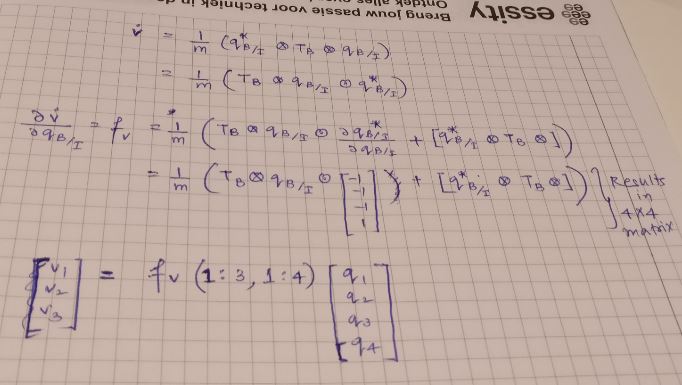 essity
Breng jouw passie voor techniek in de
Ontdek alles
v̇ = 1/m (q*B/I ⊗ TB ⊗ qB/I)
= 1/m (TB ⊗ qB/I ⊙ q*B/I)
∂v̇/∂qB/I = fv = 1/m (TB ⊗ qB/I ⊙ ∂q*B/I/∂qB/I + [q*B/I ⊗ TB ⊗])
= 1/m (TB ⊗ qB/I ⊙ [-1 -1 -1 1]) + [q*B/I ⊗ TB ⊗]) } Results
in
4x4
matrix
[v1 v2 v3] = fv (1:3, 1:4) [q1 q2 q3 q4]